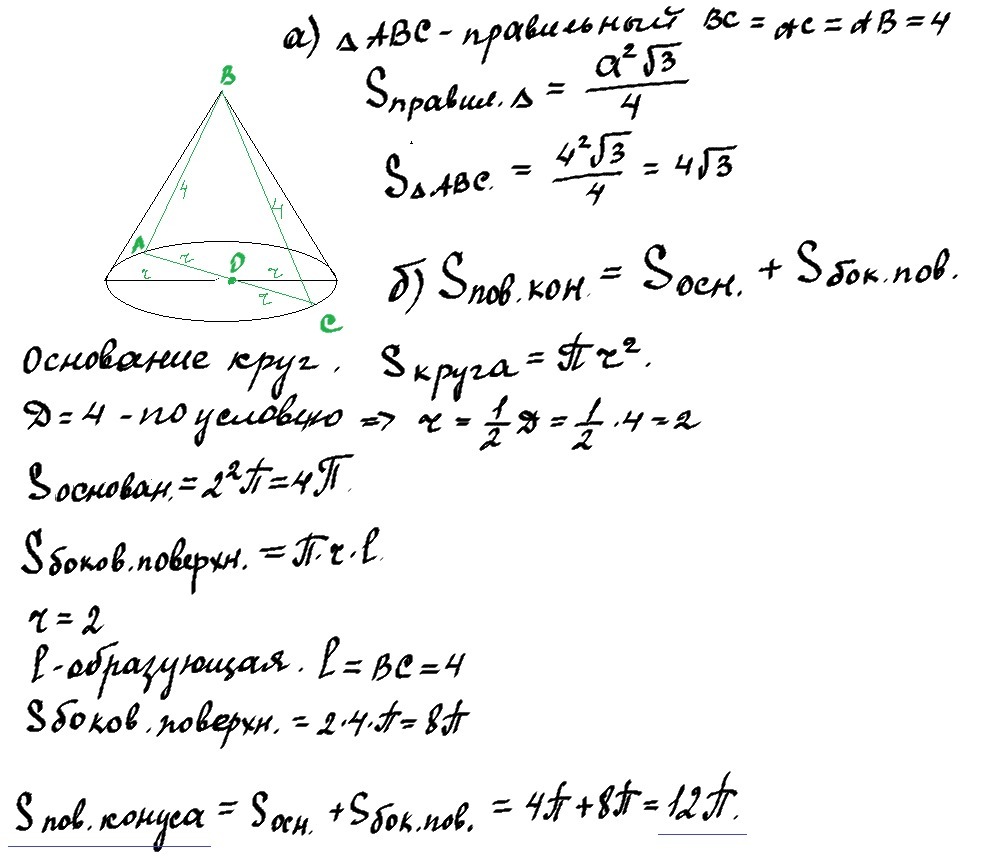 а) △ABC - правильный BC = AC = AB = 4
Sправил. △ = a²√3/4
S△ABC. = 4²√3/4 = 4√3
B
4
4
A
r
r
D
r
r
C
б) Sпов.кон. = Sосн. + Sбок.пов.
Основание круг. Sкруга = πr².
D = 4 - по условию => r = 1/2 D = 1/2 · 4 = 2
Sоснован. = 2²π = 4π.
Sбоков.поверхн. = π·r·l.
r = 2
l - образующая. l = BC = 4
Sбоков.поверхн. = 2·4·π = 8π
Sпов.конуса = Sосн. + Sбок.пов. = 4π + 8π = 12π.